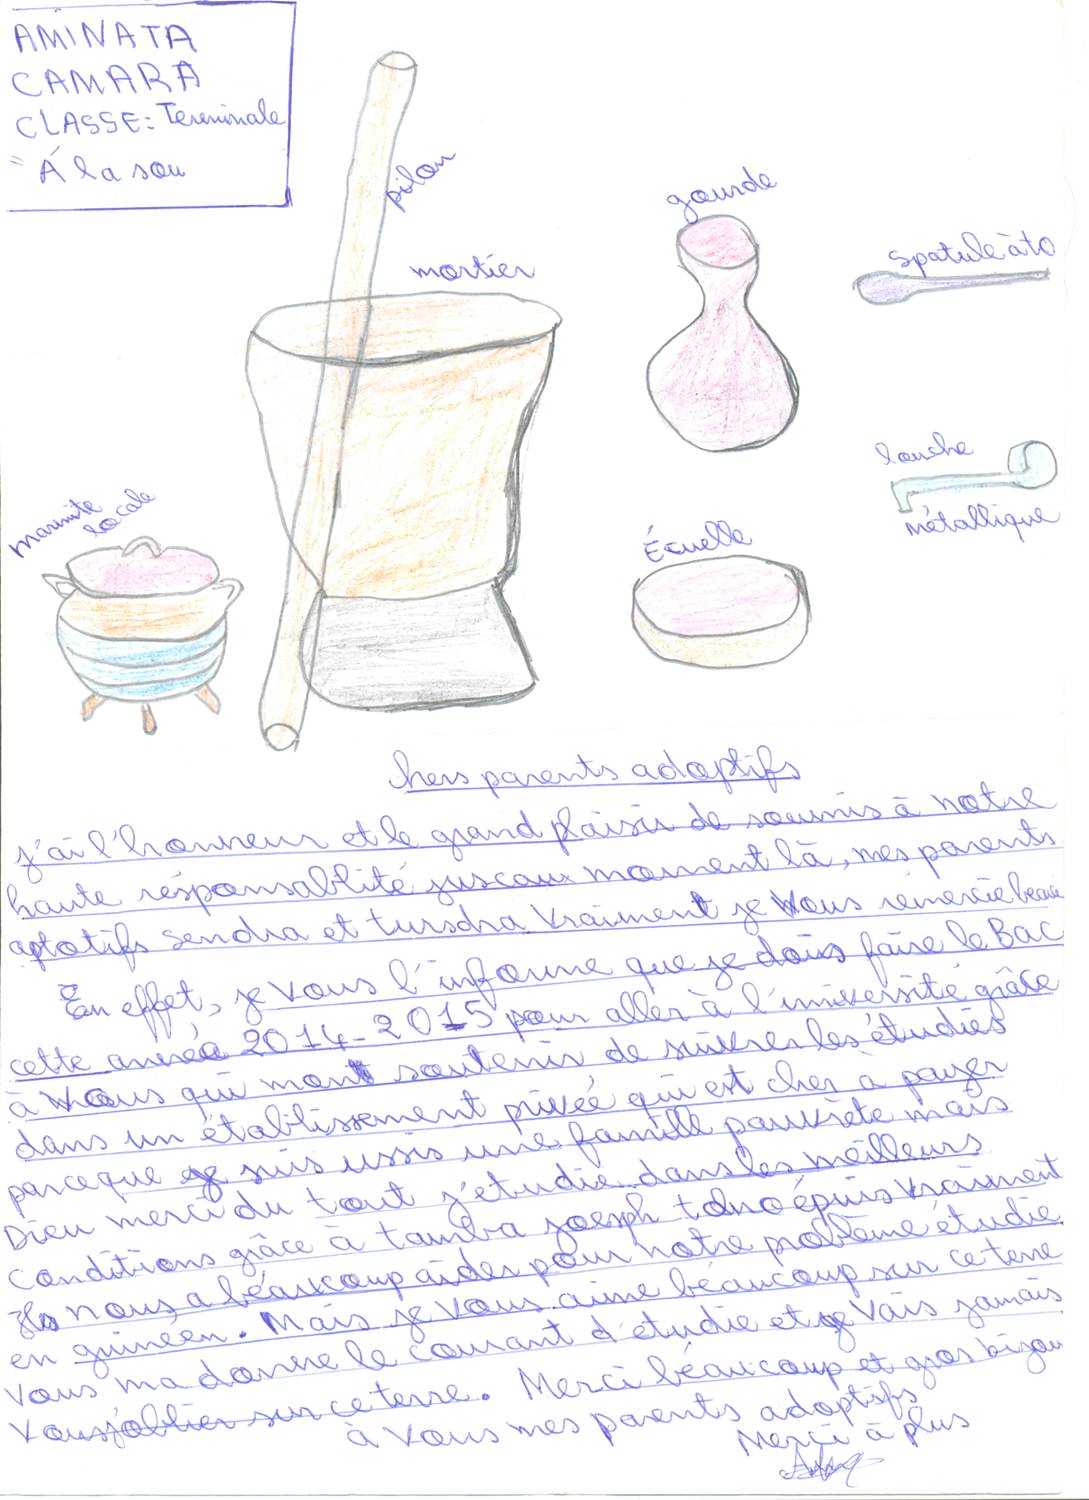 AMINATA
CAMARA
CLASSE: Terminale
"À la sou
pilon
mortier
gourde
spatule à to
louche
métallique
Écuelle
marmite
locale
chers parents adoptifs
j'ai l'honneur et le grand plaisir de soumis à notre
haute résponsablité juscaux moment là, mes parents
aptotifs sendra et tursdra vraiment je vous remercie beau
En effet, je vous l'informe que je dois faire le Bac
cette année 2014-2015 pour aller à l'university grâce
à vous qui mont soutenir de suivrer les étudies
dans un établissement privéé qui est cher à payer
parceque je suis ussis une famille pauvrète mais
Dieu merci du tout j'etudie dans les meilleurs
conditions grâce à tamba joesph tonoépuis vraiment
ils nous a béaucoup aider pour notre problème étudie
en guinéen. Mais je vous aime béaucoup sur ce terre
vous ma donne le courant d'étudie et je vais jamais
vous oblier sur ce terre. Merci béaucoup et gros bizou
à vous mes parents adoptifs
Merci à plus